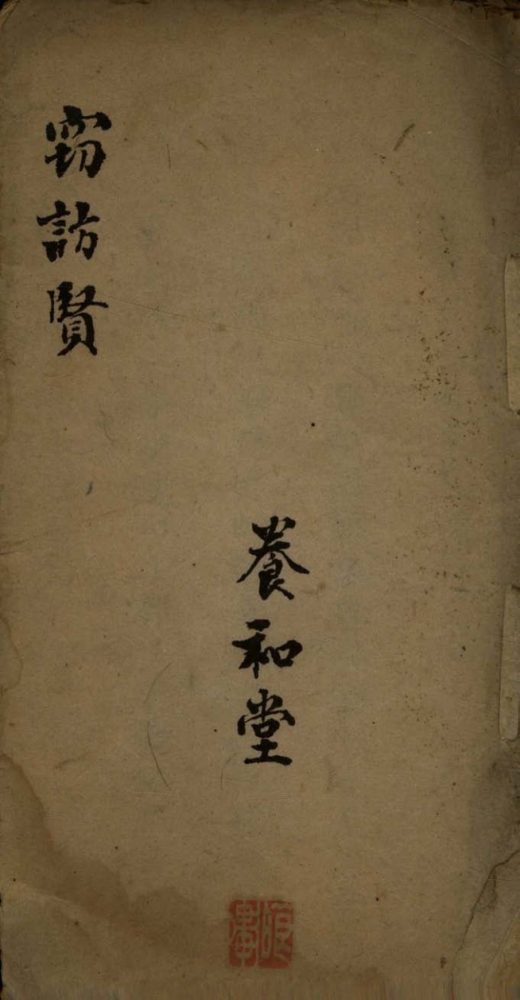 訪賢
養和堂